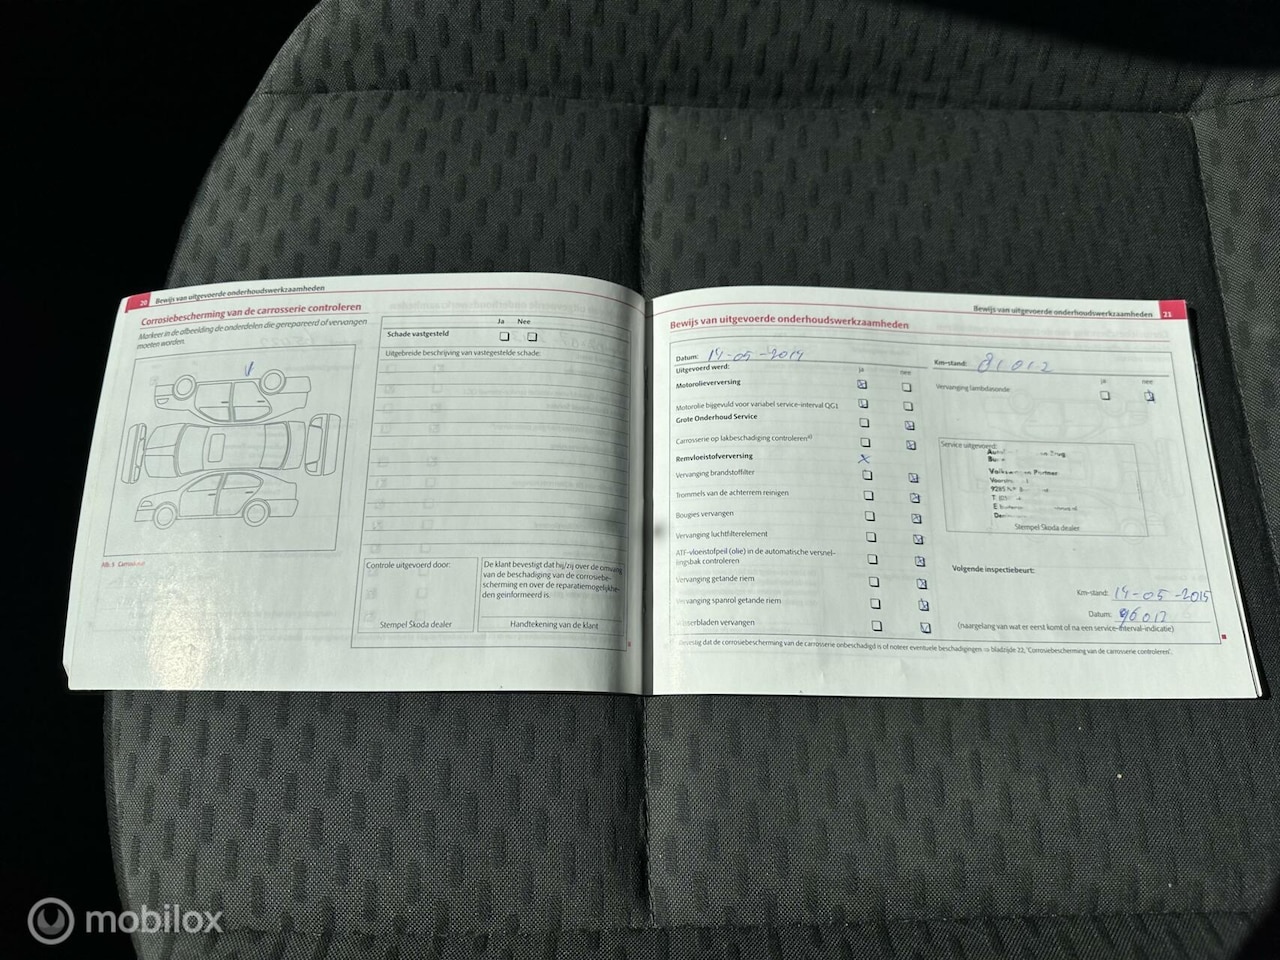 20 Bewijs van uitgevoerde onderhoudswerkzaamheden
Corrosiebescherming van de carrosserie controleren
Markeer in de afbeelding de onderdelen die gerepareerd of vervangen
moeten worden.
Ja Nee
Schade vastgesteld
Uitgebreide beschrijving van vastgestelde schade:
Afb. 5
Controle uitgevoerd door:
Stempel Škoda dealer
De klant bevestigt dat hij/zij over de omvang
van de beschadiging van de corrosiebe-
scherming en over de reparatiemogelijkhe-
den geïnformeerd is.
Handtekening van de klant
Bewijs van uitgevoerde onderhoudswerkzaamheden 21
Bewijs van uitgevoerde onderhoudswerkzaamheden
Datum: 14-05-2014
Km-stand: 81012
Uitgevoerd werd:
ja nee
ja nee
Motorolieverversing
Motorolie bijgevuld voor variabel service-interval QG1
Grote Onderhoud Service
Carrosserie op lakbeschadiging controleren
Remvloeistofverversing
Vervanging brandstoffilter
Trommels van de achterrem reinigen
Bougies vervangen
Vervanging luchtfilterelement
ATF-vloeistofpeil (olie) in de automatische versnel-
lingsbak controleren
Vervanging getande riem
Vervanging spanrol getande riem
Wisserbladen vervangen
Vervanging lambdasonde
Service uitgevoerd:
Partner
Stempel Škoda dealer
Volgende inspectiebeurt:
Km-stand: 14-05-2015
Datum: 96012
(naargelang van wat er eerst komt of na een service-interval-indicatie)
Bevestig dat de corrosiebescherming van de carrosserie onbeschadigd is of noteer eventuele beschadigingen ⇒ bladzijde 22, 'Corrosiebescherming van de carrosserie controleren'.
mobilox